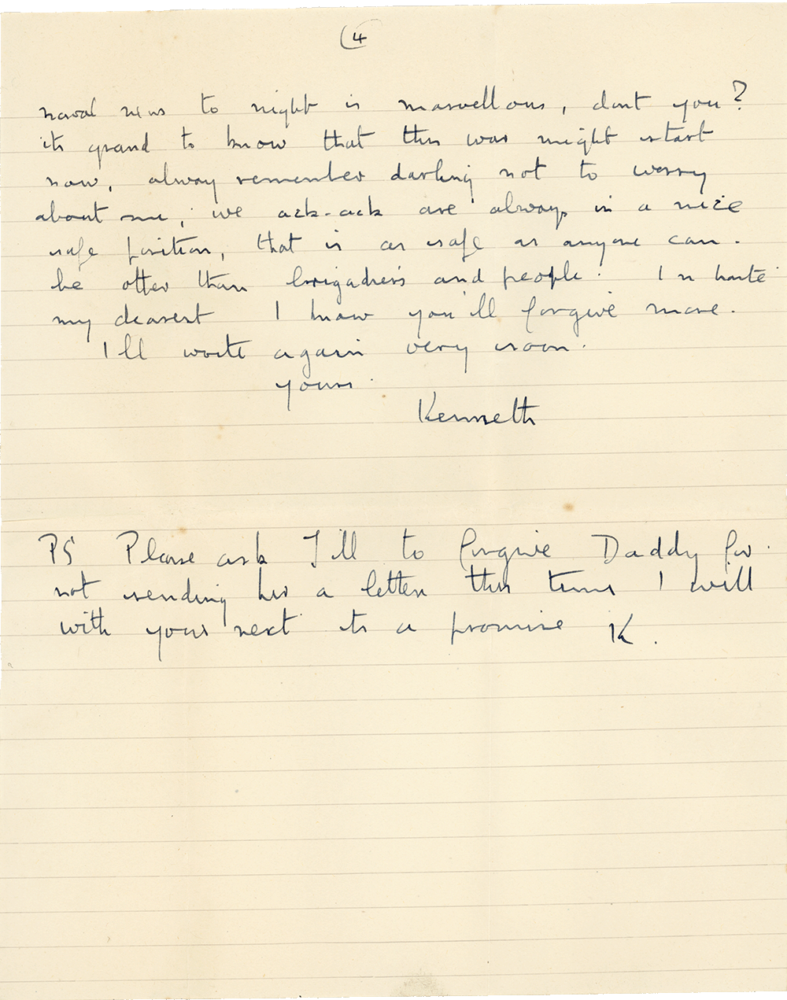 (4
naval news to night is marvellous, dont you?
its grand to know that this war might start
now, alway remember darling not to worry
about me, we ack-ack are always in a nice
safe position, that is as safe as anyone can.
be other than brigadiers and people. In haste
my dearest I know you'll forgive more.
I'll write again very soon.
yours.
Kenneth
PS Please ask Jill to forgive Daddy for
not sending her a letter this time I will
with your next its a promise K.